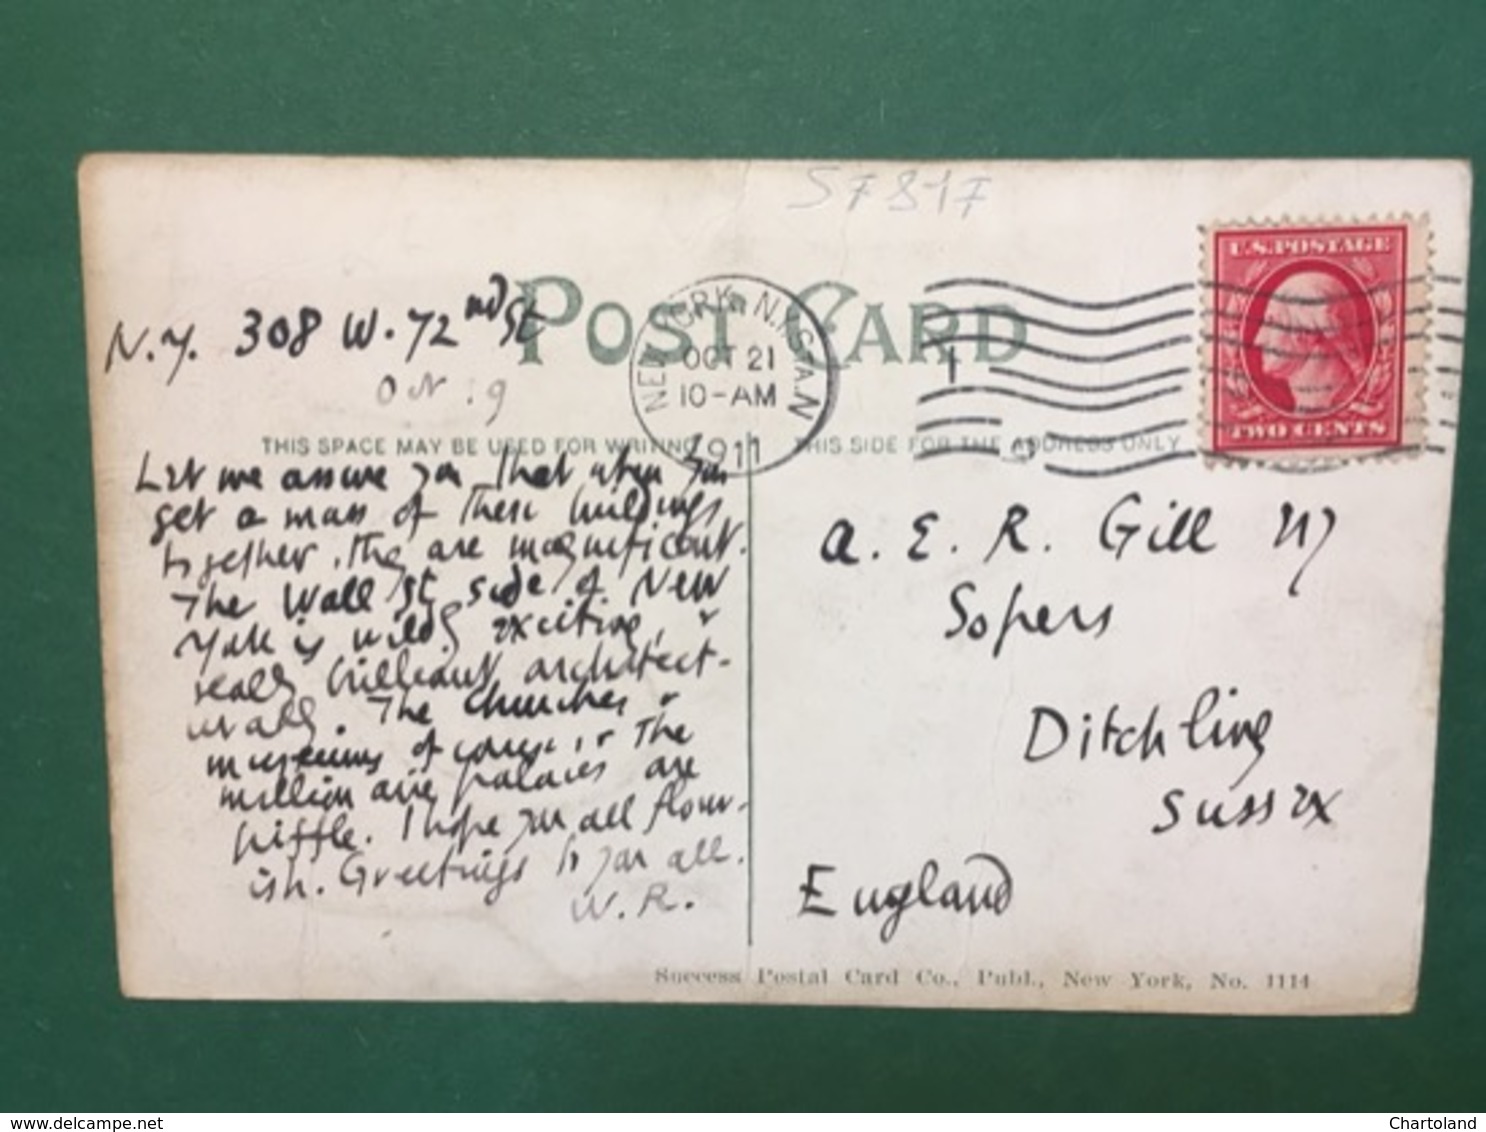 S7817
POST CARD
N.Y. 308 W. 72nd St
Oct. 19
NEW YORK, N.Y. STA. N
OCT 21
10-AM
1911
U.S. POSTAGE
TWO CENTS
THIS SPACE MAY BE USED FOR WRITING
THIS SIDE FOR THE ADDRESS ONLY
Let me assure you that when you
get a mass of these buildings
together, they are magnificent.
The Wall St side of New
York is wildly exciting, &
really brilliant architect-
urally. The churches &
museums of course, & the
millionaire palaces are
piffle. I hope you all flour-
ish. Greetings to you all.
W.R.
A. E. R. Gill
Sopers
Ditchling
Sussex
England
Success Postal Card Co., Publ., New York, No. 1114
delcampe.net
Chartoland